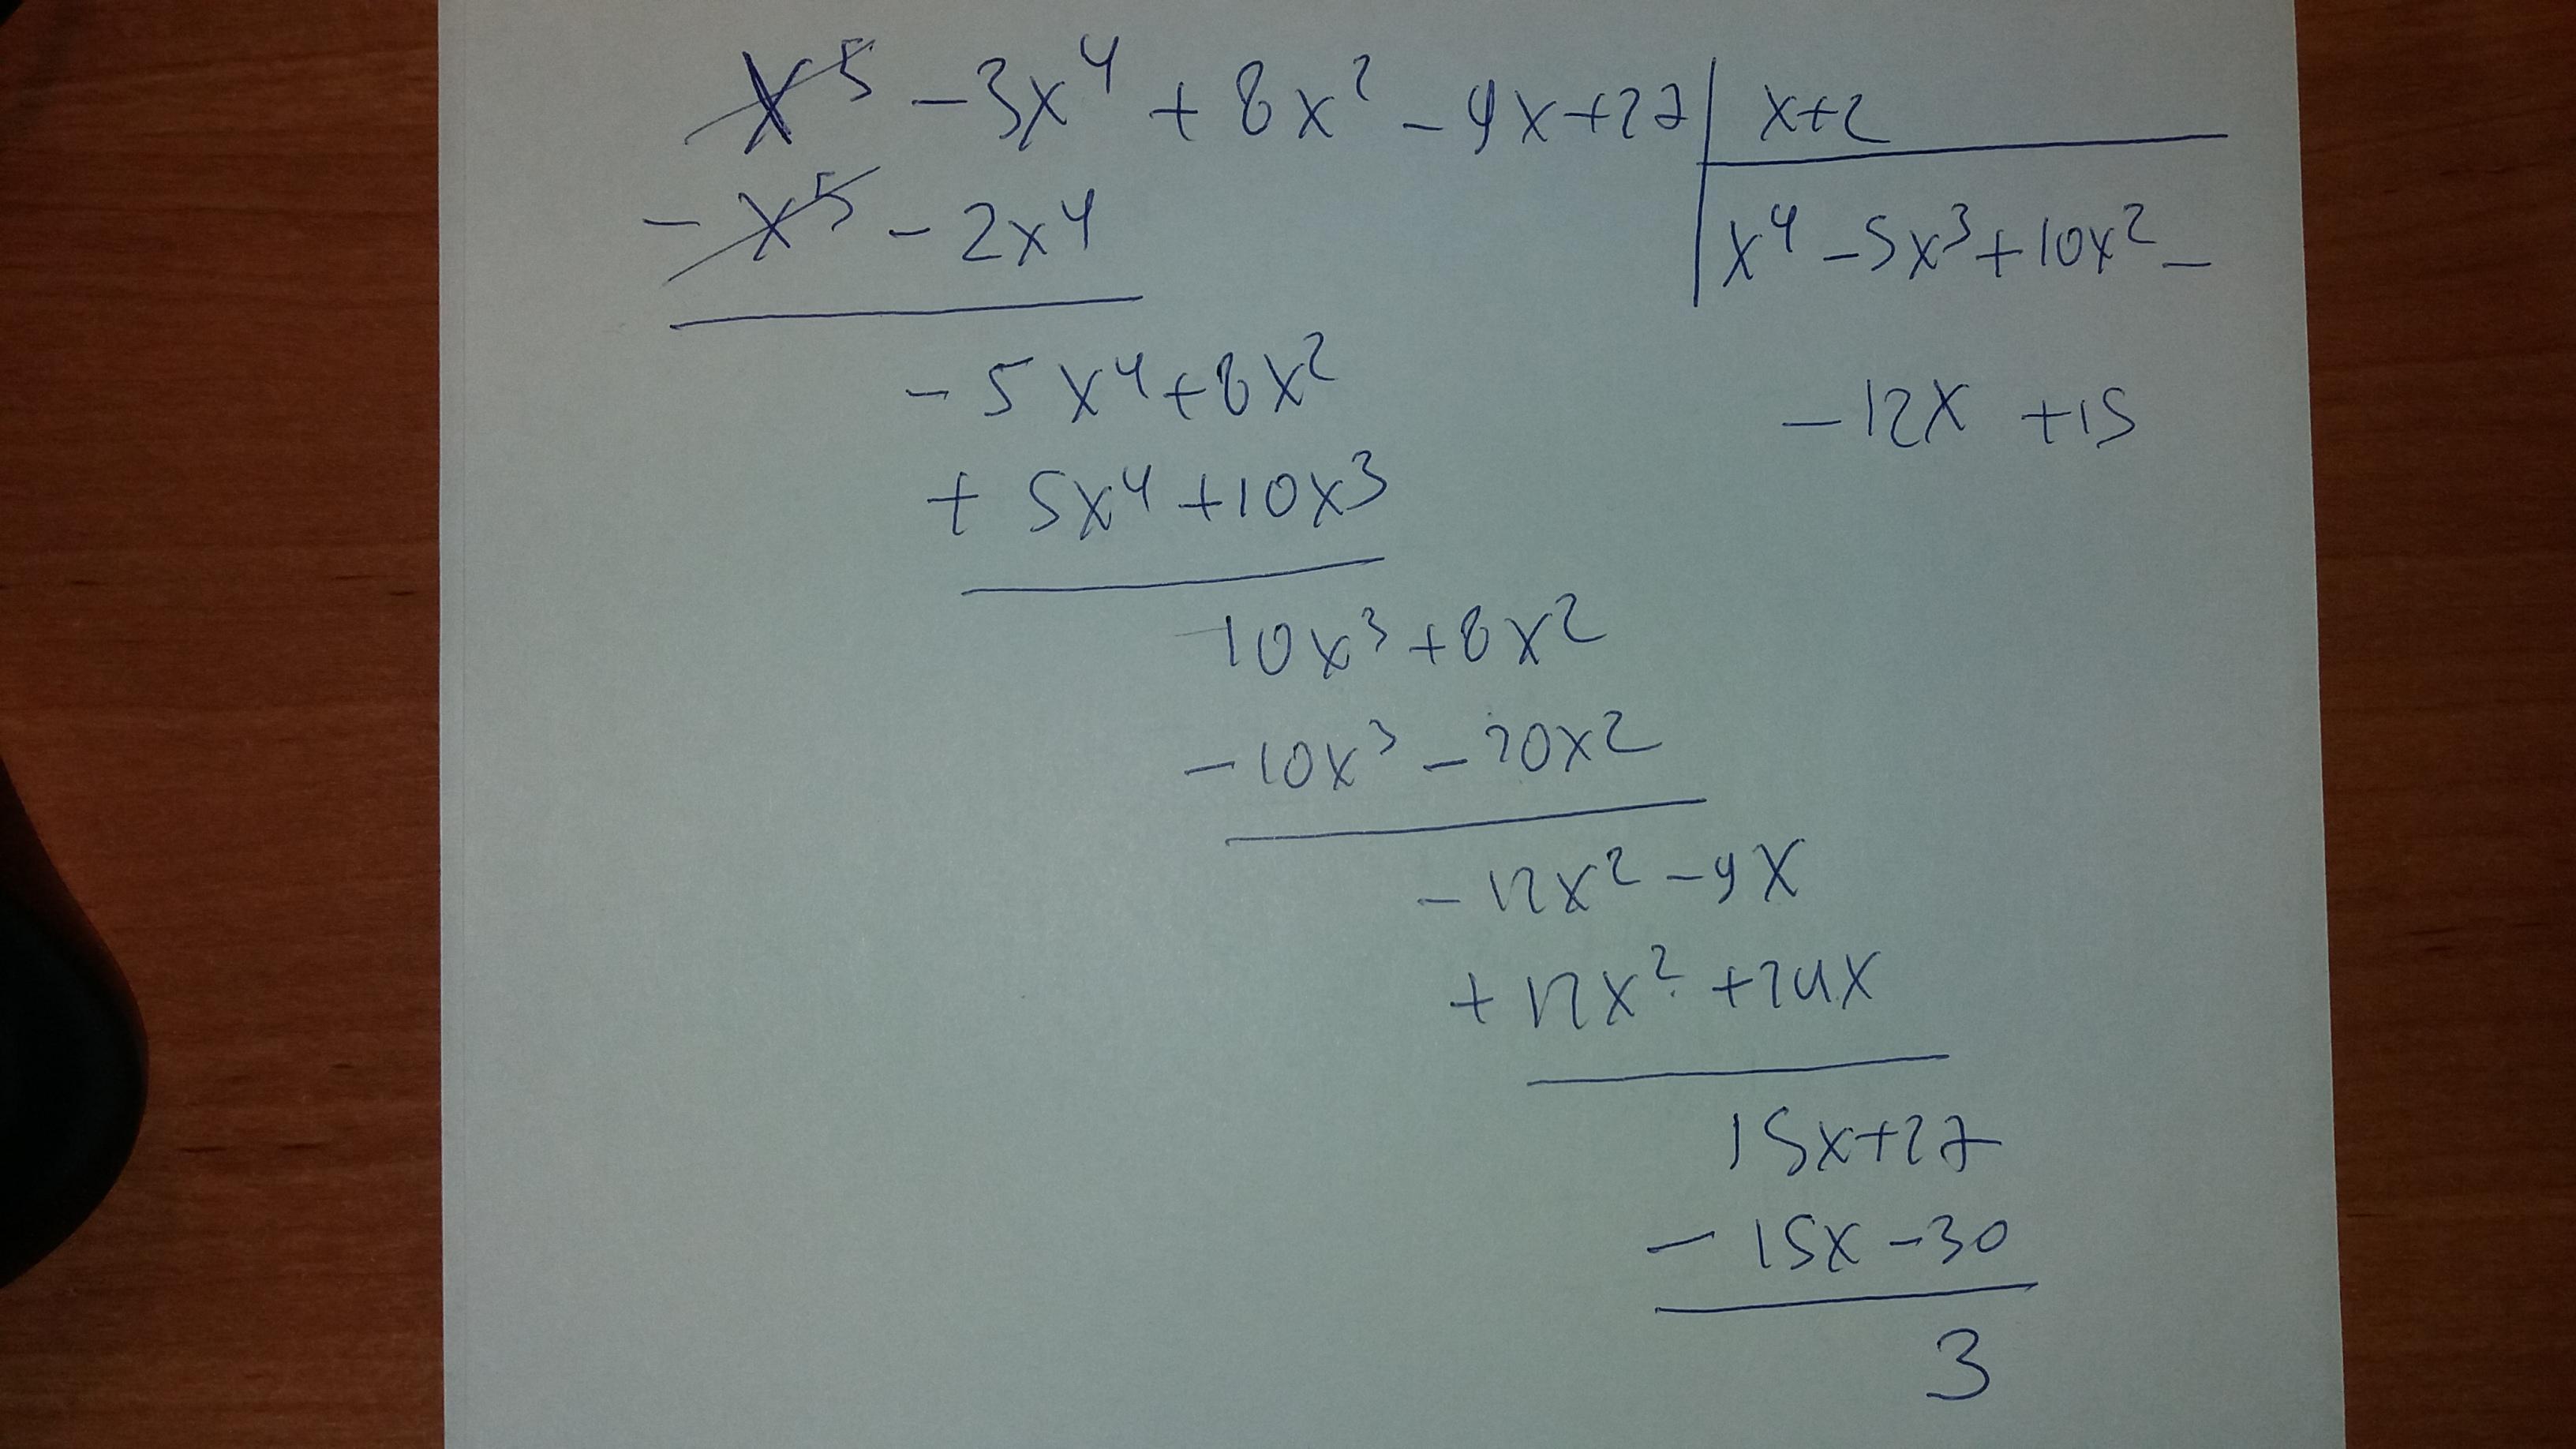 x⁵ - 3x⁴ + 8x² - 9x + 27 | x+2
- x⁵ - 2x⁴
x⁴ - 5x³ + 10x² -
- 5x⁴ + 8x²
- 12x + 15
+ 5x⁴ + 10x³
10x³ + 8x²
- 10x³ - 20x²
- 12x² - 9x
+ 12x² + 24x
15x + 27
- 15x - 30
3